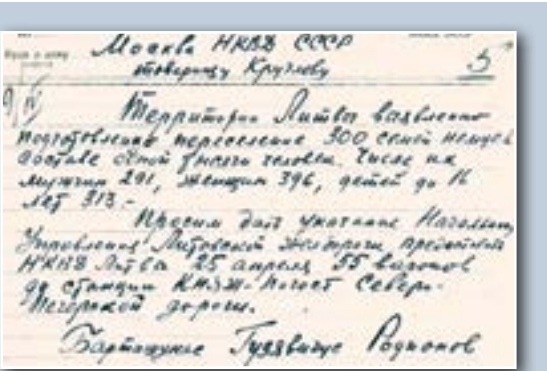 Москва НКВД СССР
товарищу Круглову
5
Территории Литвы выявлено
подготовлено переселение 300 семей немцев
составе одной тысячи человек. Числе их
мужчин 291, женщин 396, детей до 16
лет 313.-
Просим дать указание
Управления Литовской железной
НКВД Литвы 25 апреля 55 вагонов
до станции Княж-Погост Северо-
Печерской дороги.
Барташунас Гузявичус Родионов